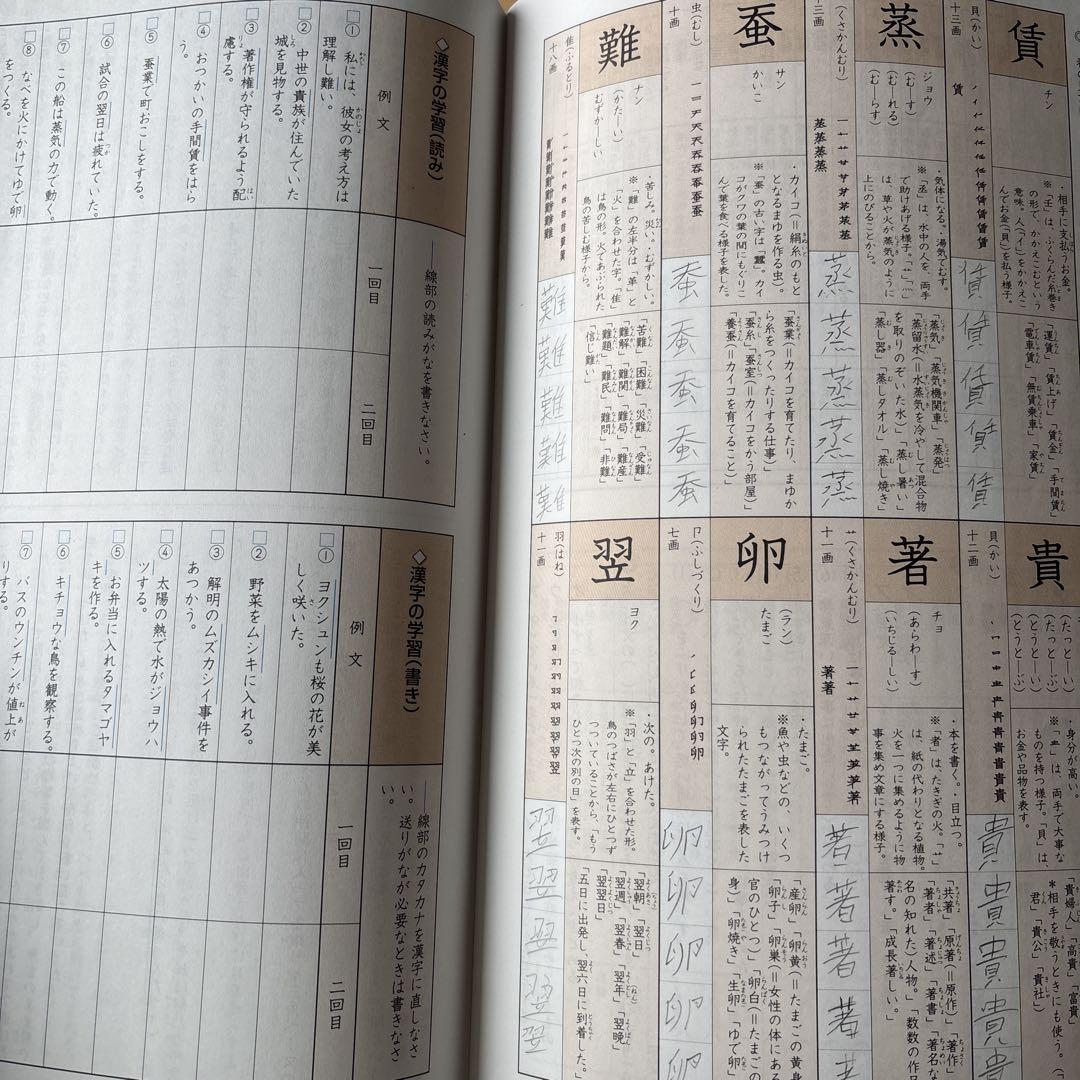 賃
貝(かい)
十三画
賃
チン
・相手に支払うお金。
※「壬」は、ふくらんだ糸巻き
の形で、かかえこむという
意味。人(イ)をかかえこ
んでお金(貝)を払う様子。
「運賃」「賃上げ」「賃金」「手間賃」
「電車賃」「無賃乗車」「家賃」
賃
賃
賃
賃
賃
蒸
(くさかんむり)
十三画
蒸蒸蒸蒸
ジョウ
(む―す)
(む―れる)
(む―らす)
・気体になる。・湯気でむす。
※「丞」は、水中の人を、両手
で助けあげる様子。「艹」…
は、草や火が蒸気のように
上にのびることから。
「蒸気」「蒸気機関車」「蒸発」
「蒸留水(=水蒸気を冷やして混合物
を取りのぞいた水)」「蒸し暑い」
「蒸し器」「蒸しタオル」「蒸し焼き」
蒸
蒸
蒸
蒸
蒸
蚕
虫(むし)
十画
サン
かいこ
・カイコ(=絹糸のもと
となるまゆを作る虫)。
※「蚕」の古い字は「蠶」。カイ
コがクワの葉の間にもぐりこ
んで葉を食べる様子を表した。
「蚕業(=カイコを育てたり、まゆか
ら糸をつくったりする仕事)」
「蚕糸」「蚕室(=カイコをかう部屋)」
「養蚕(=カイコを育てること)」
蚕
蚕
蚕
蚕
蚕
難
隹(ふるとり)
十八画
ナン
(かた―い)
むずか―しい
・苦しみ。災い。・むずかしい。
※「難」の左半分は「革」と
「火」を合わせた字。「隹」
は鳥の形。火であぶられた
鳥の苦しむ様子から。
「苦難」「困難」「災難」「受難」
「難解」「難関」「難局」「難産」
「難題」「難民」「難問」「非難」
「信じ難い」
難
難
難
難
難
貴
貝(かい)
十二画
(たっと―い)
(とうと―い)
(たっと―ぶ)
(とうと―ぶ)
・身分が高い。
ものを持つ様子。「貝」は、
お金や品物を表す。
「貴婦人」「高貴」「富貴」
*相手を敬うときにも使う。「
君」「貴公」「貴社」)
貴
貴
貴
貴
貴
著
艹(くさかんむり)
十一画
著著
チョ
(あらわ―す)
(いちじる―しい)
・本を書く。・目立つ。
※「者」は、たきぎの火。「艹」
は、紙の代わりとなる植物。
火を一つに集めるように物
事を集め文章にする様子。
「共著」「原著(=原作)」「著作」
「著者」「著述」「著書」「著名な
名の知れた)人物。」「数数の作品
著す。」「成長著しい。」
著
著
著
著
卵
卩(ふしづくり)
七画
(ラン)
たまご
・たまご。
※魚や虫などの、いくつ
もつながってうみつけ
られたたまごを表した
文字。
「産卵」「卵黄(=たまごの黄身
「卵子」「卵巣(=女性の体にある
官のひとつ)」「卵白(=たまごの
身)」「卵焼き」「生卵」「ゆで卵
卵
卵
卵
卵
卵
翌
羽(はね)
十一画
ヨク
・次の。あけた。
※「羽」と「立」を合わせた形。
鳥のつばさが左右にひとつず
つついていることから、「もう
ひとつ次の別の日」を表す。
「翌朝」「翌日」
「翌週」「翌春」「翌年」「翌晩」
「翌翌日」
「五日に出発し、翌六日に到着した。」
翌
翌
翌
翌
翌
◇漢字の学習(読み)
――線部の読みがなを書きなさい。
例文
一回目
二回目
① 私には、彼女の考え方は
理解し難い。
② 中世の貴族が住んでいた
城を見物する。
③ 著作権が守られるよう配
慮する。
④ おつかいの手間賃をはら
う。
⑤ 蚕業で町おこしをする。
⑥ 試合の翌日は疲れていた。
⑦ この船は蒸気の力で動く。
⑧ なべを火にかけてゆで卵
をつくる。
◇漢字の学習(書き)
――線部のカタカナを漢字に直しなさ
い。送りがなが必要なときは書きなさ
い。
例文
一回目
二回目
① ヨクシュンも桜の花が美
しく咲いた。
② 野菜をムシキに入れる。
③ 解明のムズカシイ事件を
あつかう。
④ 太陽の熱で水がジョウハ
ツする。
⑤ お弁当に入れるタマゴヤ
キを作る。
⑥ キチョウな鳥を観察する。
⑦ バスのウンチンが値上が
りする。